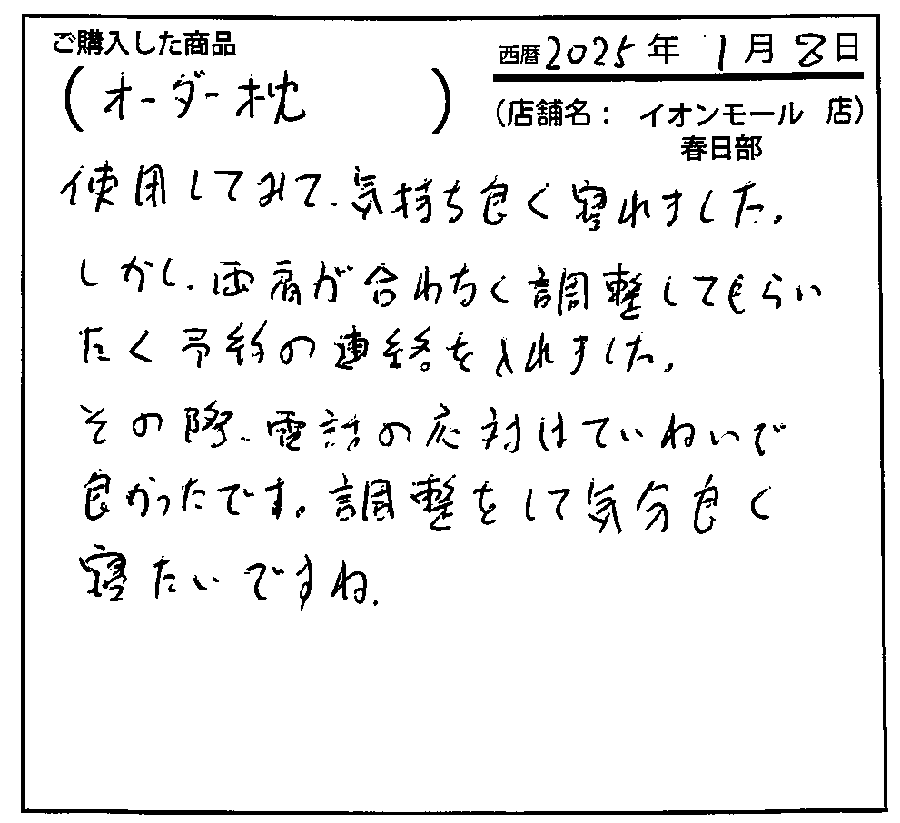 ご購入した商品
西暦2025年 1月8日
(オーダー枕)
(店舗名: イオンモール 店)
春日部
使用してみて、気持ち良く寝れました。
しかし、両肩が合わなく調整してもらい
たく予約の連絡を入れました。
その際、電話の応対はていねいで
良かったです。調整をして気分良く
寝たいですね。